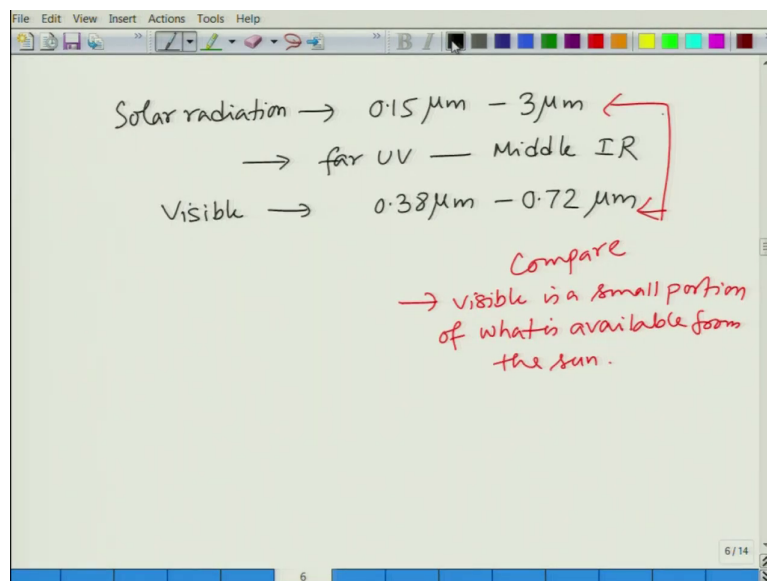 File Edit View Insert Actions Tools Help
B I
Solar radiation → 0.15 μm - 3 μm
→ far UV — Middle IR
Visible → 0.38 μm - 0.72 μm
Compare
→ visible is a small portion
of what is available from
the sun.
6/14
6